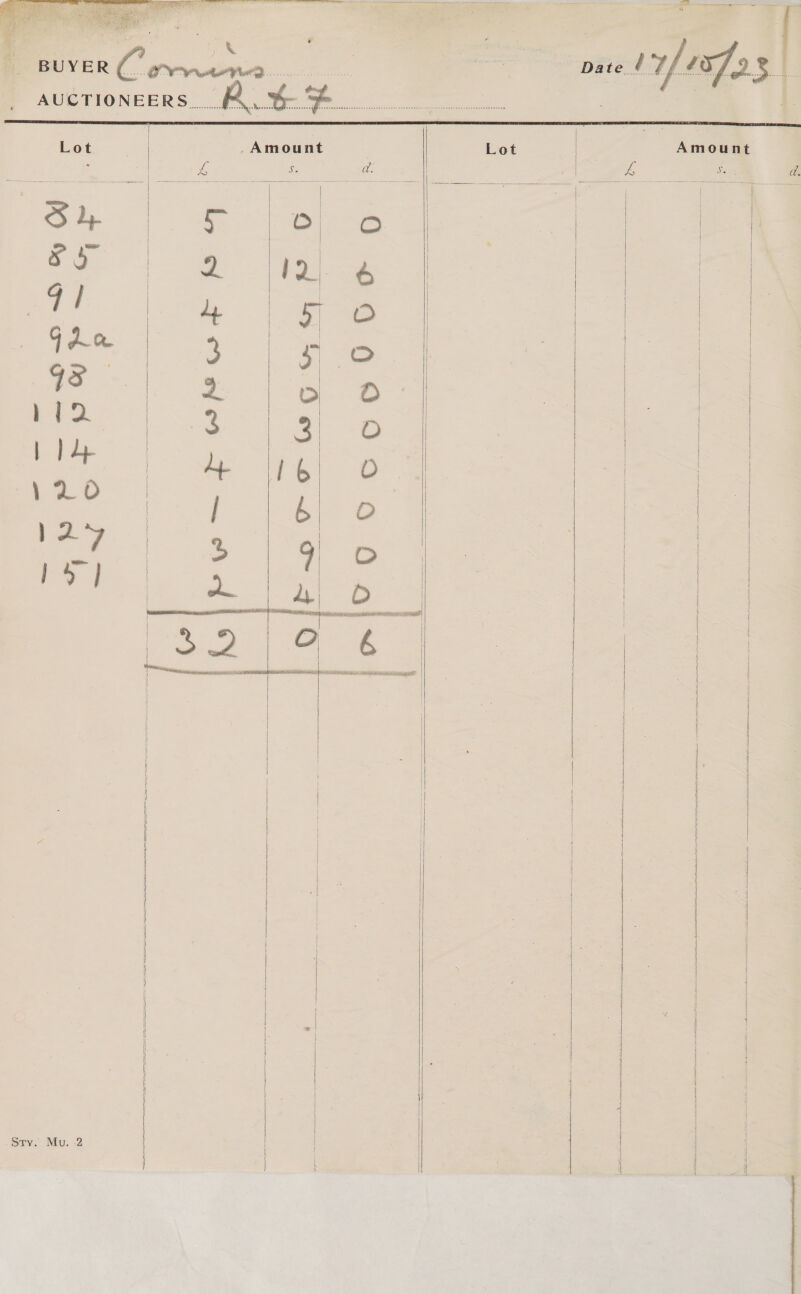 BUYER Comins
Date 17/10/23
AUCTIONEERS R. & F
Lot Amount Lot Amount
£ s. d. £ s. d.
84 5 0 0
85 2 12 6
91 4 5 0
92a 3 5 0
98 2 0 0
112 3 3 0
114 4 16 0
120 1 6 0
127 3 9 0
151 2 4 0
32 0 6
Sty. Mu. 2